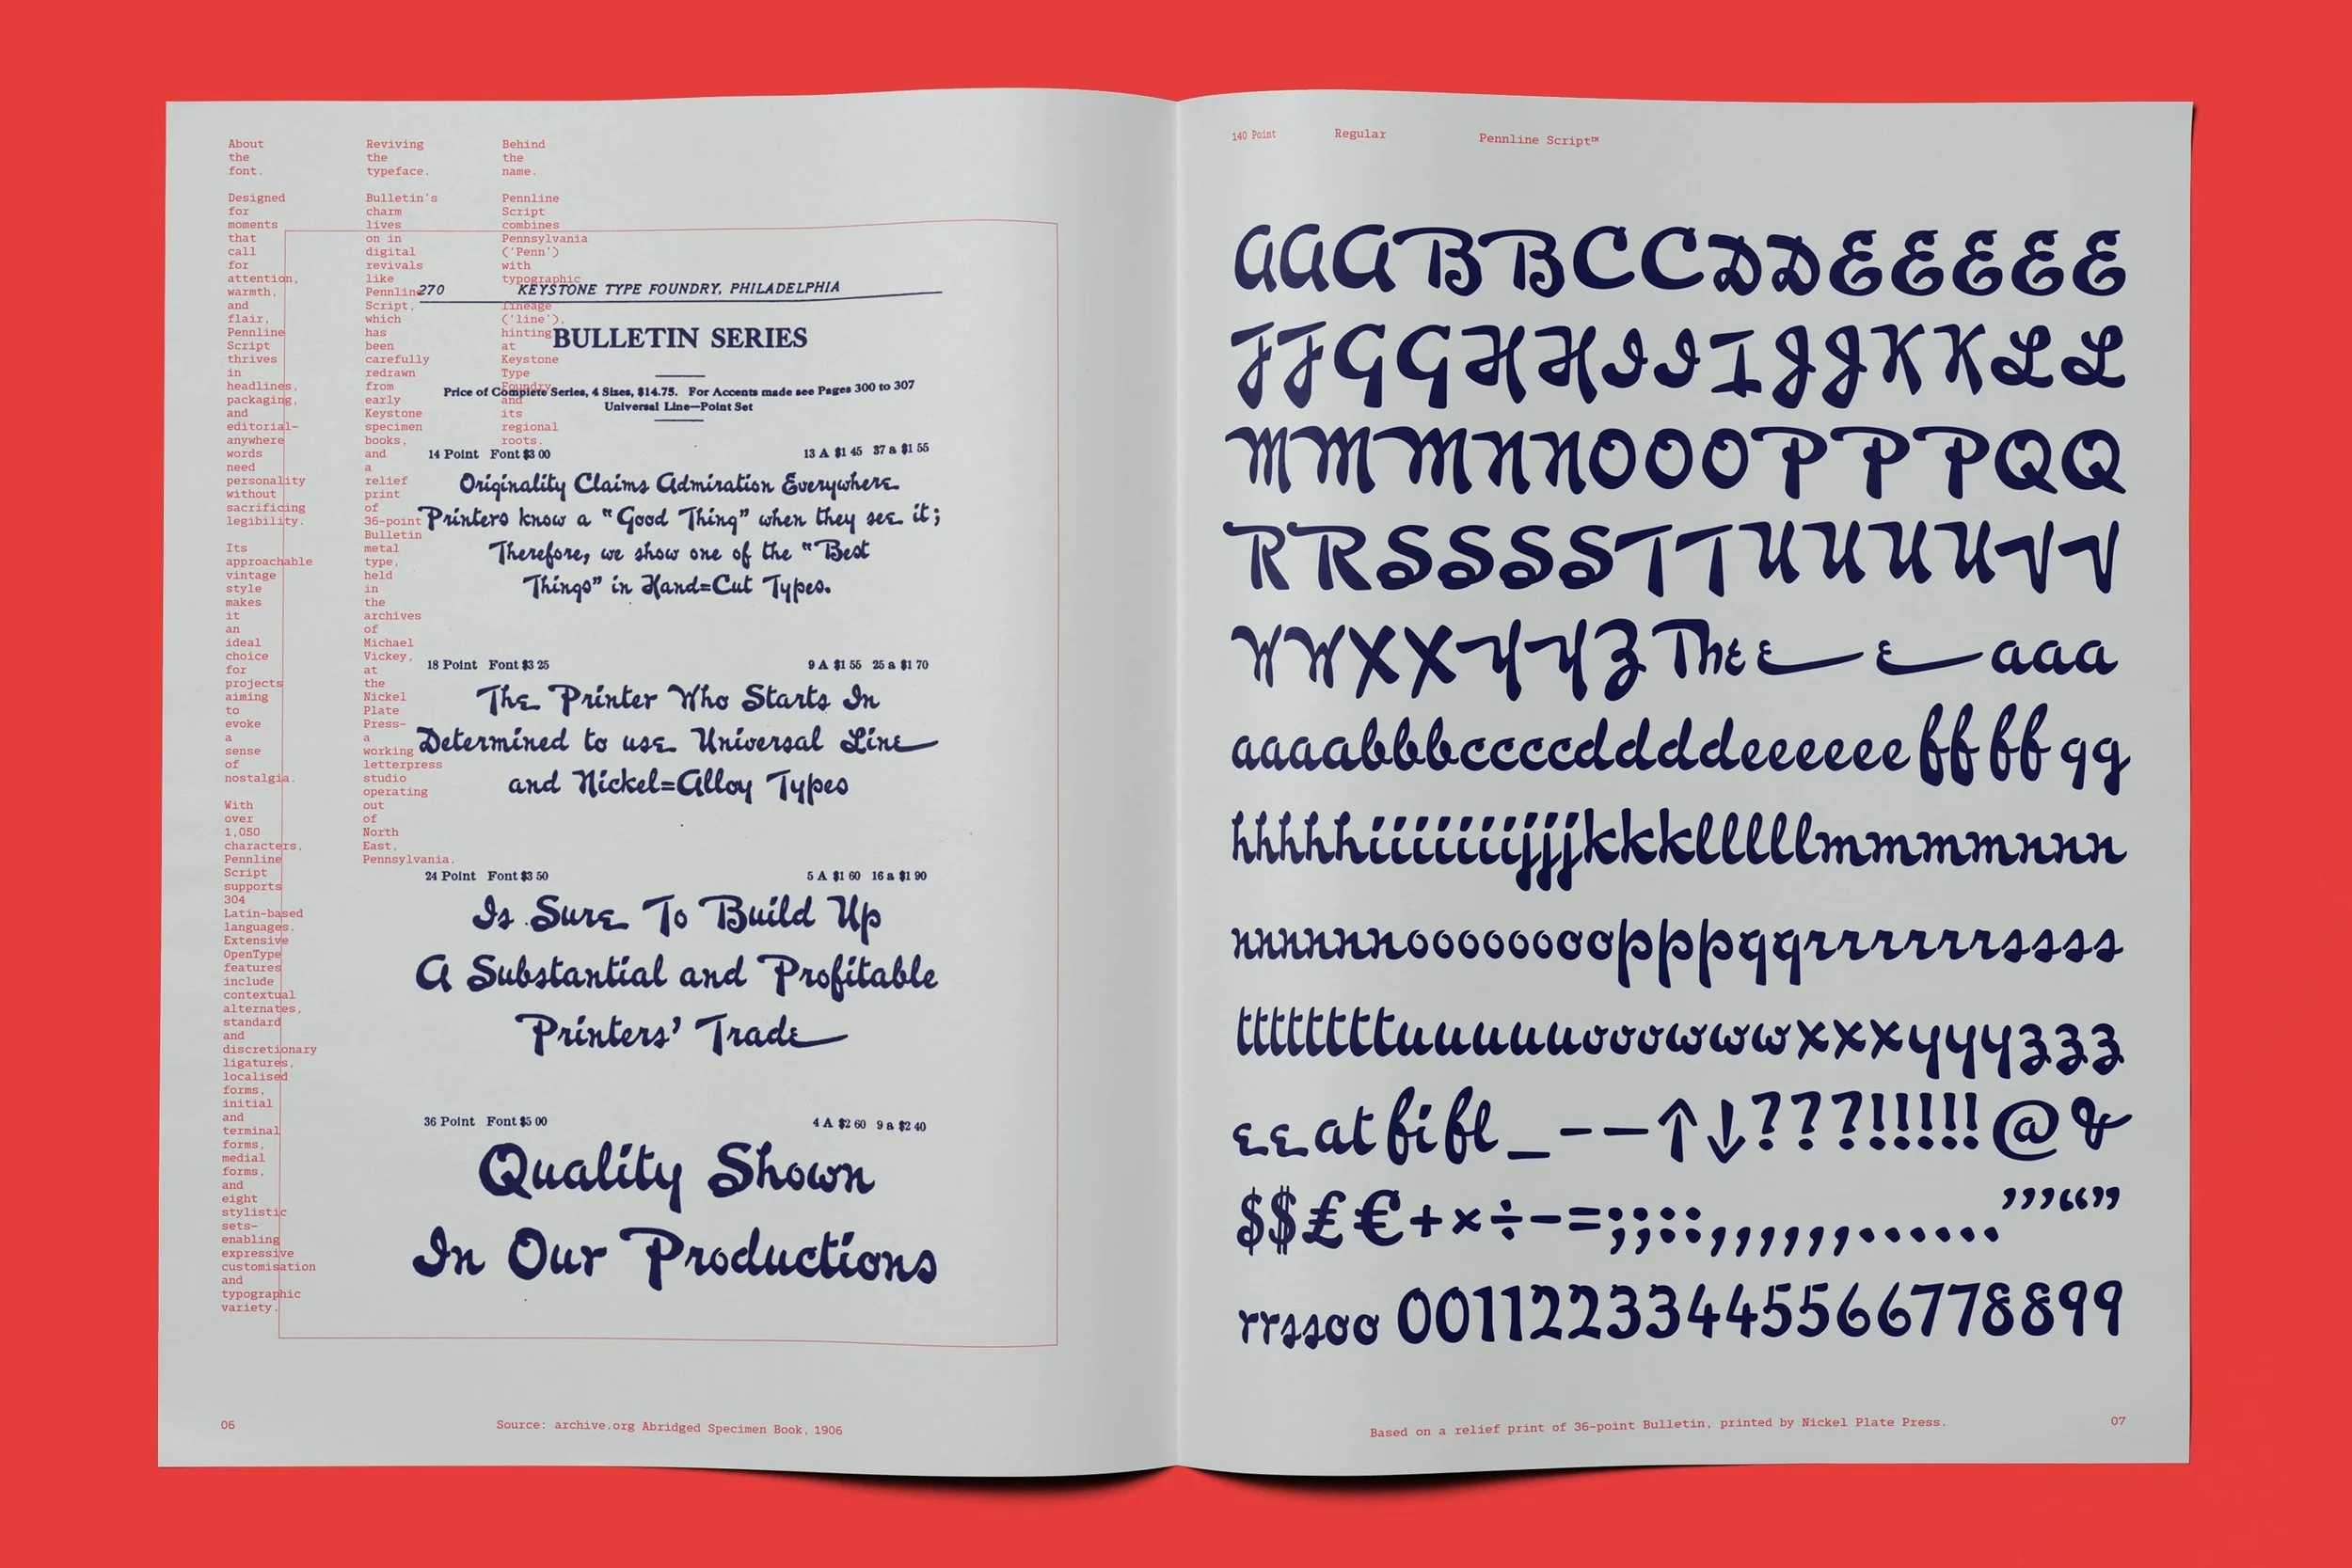 About
the
font.
Designed
for
moments
that
call
for
attention,
warmth,
and
flair,
Pennline
Script
thrives
in
headlines,
packaging,
and
editorial–
anywhere
words
need
personality
without
sacrificing
legibility.
Its
approachable
vintage
style
makes
it
an
ideal
choice
for
projects
aiming
to
evoke
a
sense
of
nostalgia.
With
over
1,050
characters,
Pennline
Script
supports
304
Latin-based
languages.
Extensive
OpenType
features
include
contextual
alternates,
standard
and
discretionary
ligatures,
localised
forms,
initial
and
terminal
forms,
medial
forms,
and
eight
stylistic
sets–
enabling
expressive
customisation
and
typographic
variety.
Reviving
the
typeface.
Bulletin's
charm
lives
on in
digital
revivals
like
Pennline
Script,
which
has
been
carefully
redrawn
from
early
Keystone
specimen
books,
and
a
relief
print
of
36-point
Bulletin
metal
type,
held
in
the
archives
of
Michael
Vickey,
at
the
Nickel
Plate
Press–
a
working
letterpress
studio
operating
out
of
North
East,
Pennsylvania.
Behind
the
name.
Pennline
Script
combines
Pennsylvania
('Penn')
with
typographic
lineage
('line'),
hinting
at
Keystone
Type
Foundry
and
its
regional
roots.
270 KEYSTONE TYPE FOUNDRY, PHILADELPHIA
BULLETIN SERIES
Price of Complete Series, 4 Sizes, $14.75. For Accents made see Pages 300 to 307
Universal Line—Point Set
14 Point Font $3 00 13 A $1 45 37 a $1 55
Originality Claims Admiration Everywhere
Printers know a “Good Thing” when they see it;
Therefore, we show one of the “Best
Things” in Hand=Cut Types.
18 Point Font $3 25 9 A $1 55 25 a $1 70
The Printer Who Starts In
Determined to use Universal Line
and Nickel=Alloy Types
24 Point Font $3 50 5 A $1 60 16 a $1 90
Is Sure To Build Up
A Substantial and Profitable
Printers’ Trade
36 Point Font $5 00 4 A $2 60 9 a $2 40
Quality Shown
In Our Productions
06 Source: archive.org Abridged Specimen Book, 1906
140 Point Regular Pennline Script™
AAABBCCDDEEEEE
FFGGHHIIIJJKKLL
MMMNNOOOPPPQQ
RRSSSSTTUUUUVV
WWXXYYZ The e e aaa
aaaabbbccccddddeeeeee ff ff gg
hhhhhiiiiiiiijjjkkklllllmmmmnnn
nnnnnnoooooooooopppqqrrrrrrrssss
ttttttttuuuuuuvvvwwwxxxyyyzzz
ee at fi fl _ – — ↑↓???!!!!!@&
$$£€+×÷−=;;::,,,,,,,.......’’’“”
rrssoo 00112233445566778899
Based on a relief print of 36-point Bulletin, printed by Nickel Plate Press. 07